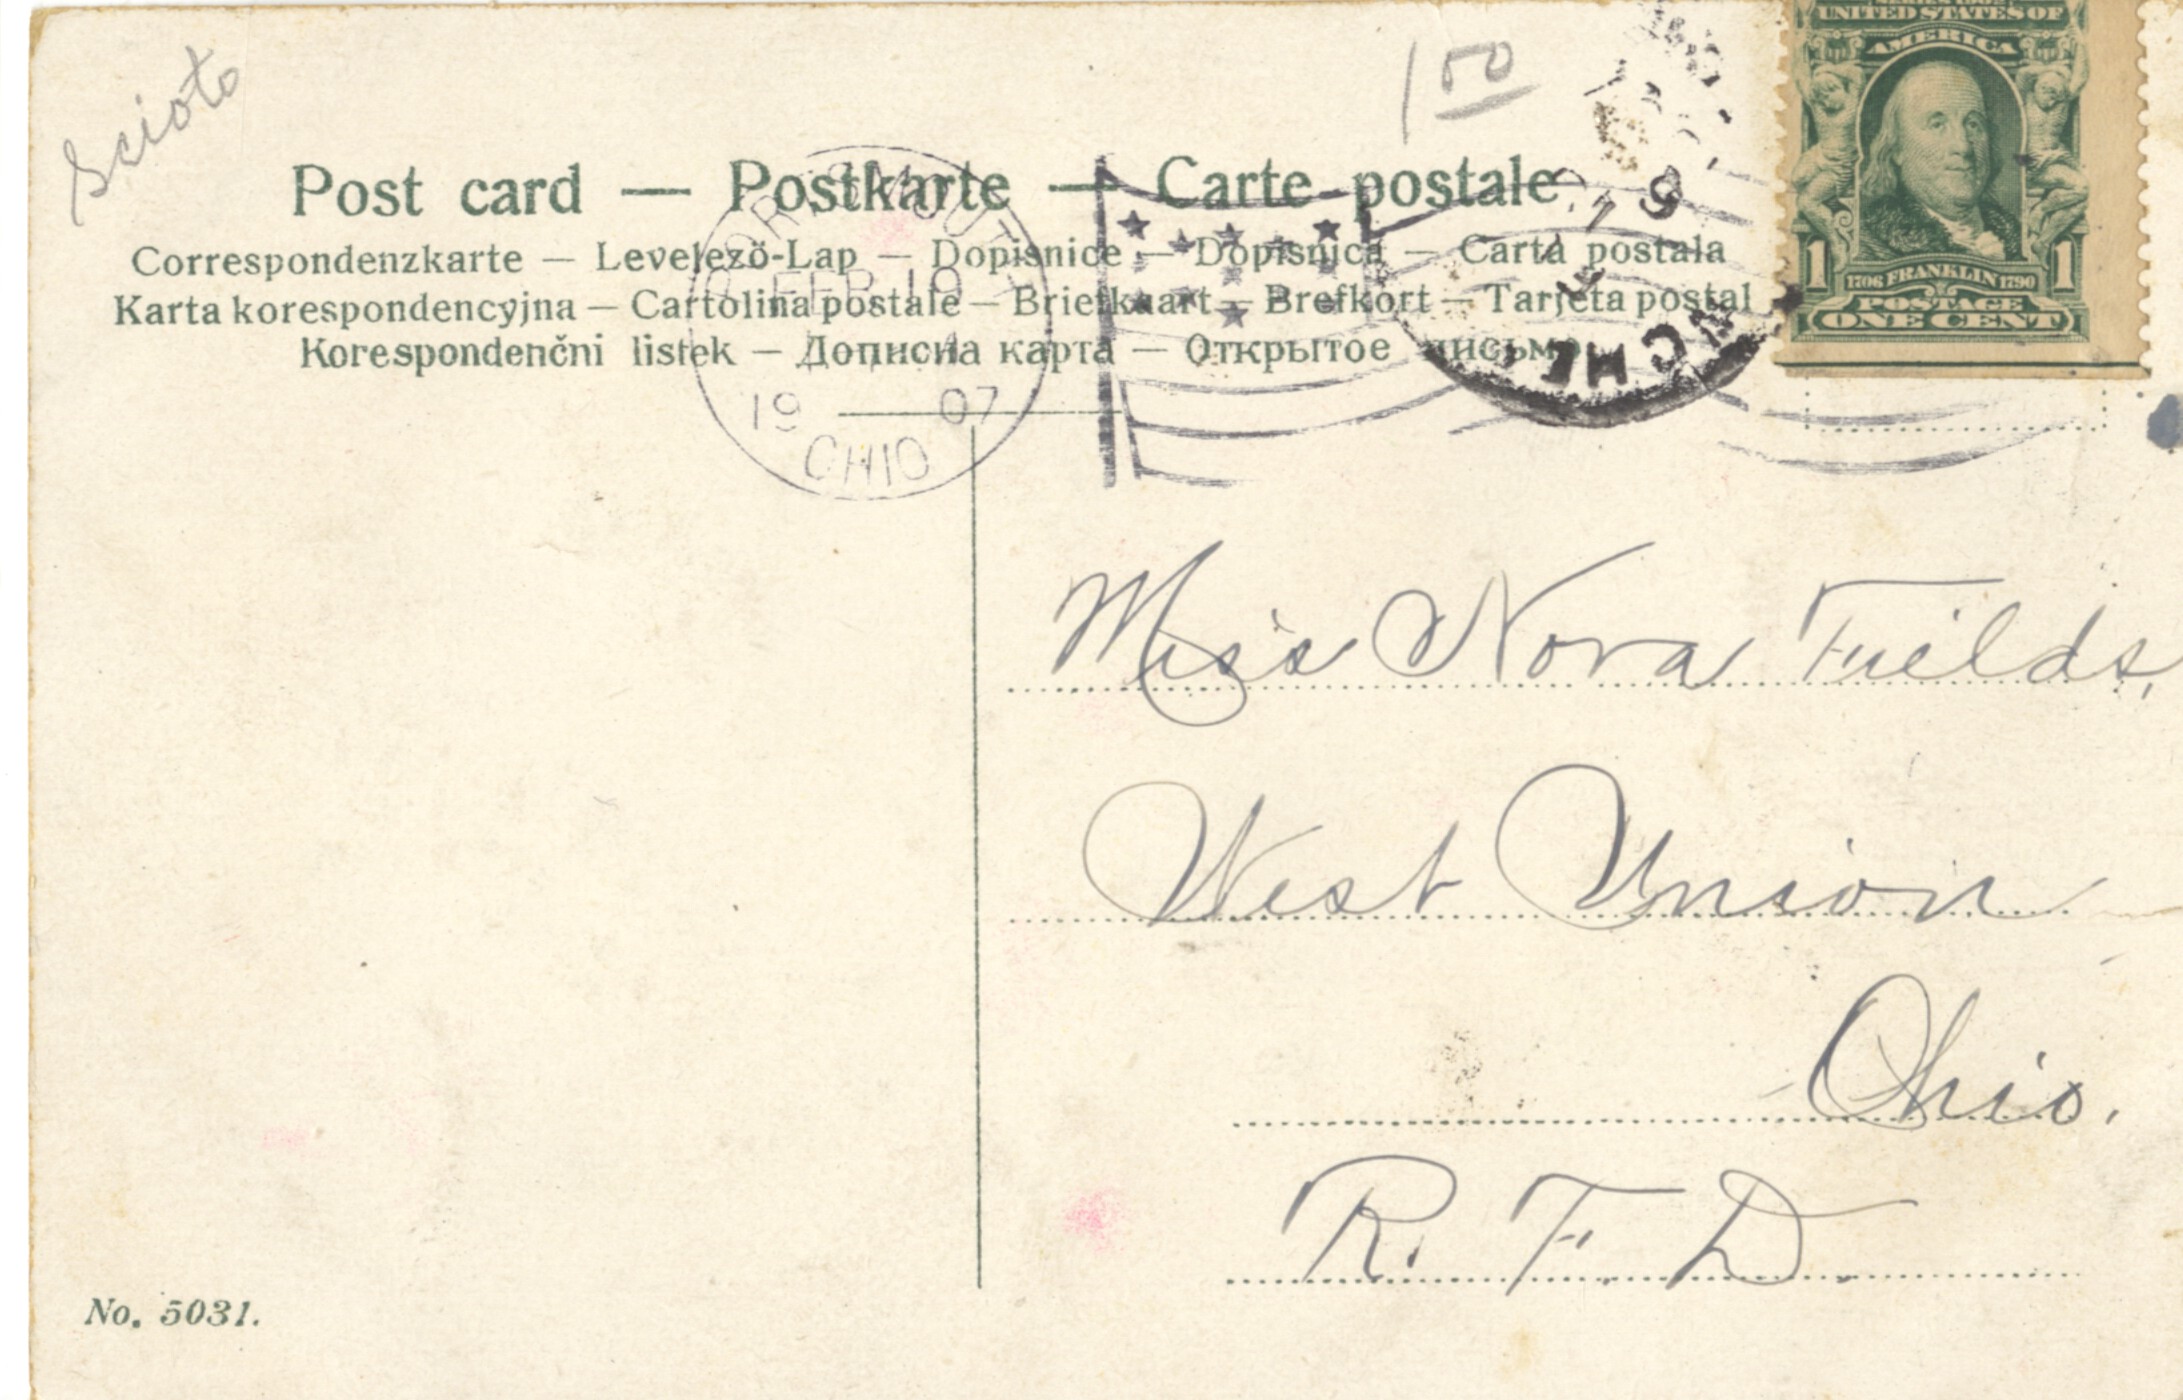 Scioto
1 00
SERIES 1902
UNITED STATES OF
AMERICA
1 1
1706 FRANKLIN 1790
POSTAGE
ONE CENT
Post card — Postkarte — Carte postale
Correspondenzkarte — Levelező-Lap — Dopisnice — Dopisnica — Carta postala
Karta korespondencyjna — Cartolina postale — Briefkaart — Brefkort — Tarjeta postal
Korespondenčni listek — Дописна карта — Открытое письмо
PORTSMOUTH
FEB 19
19 07
OHIO
Miss Nova Fields,
West Union
Ohio.
R. F. D.
No. 5031.